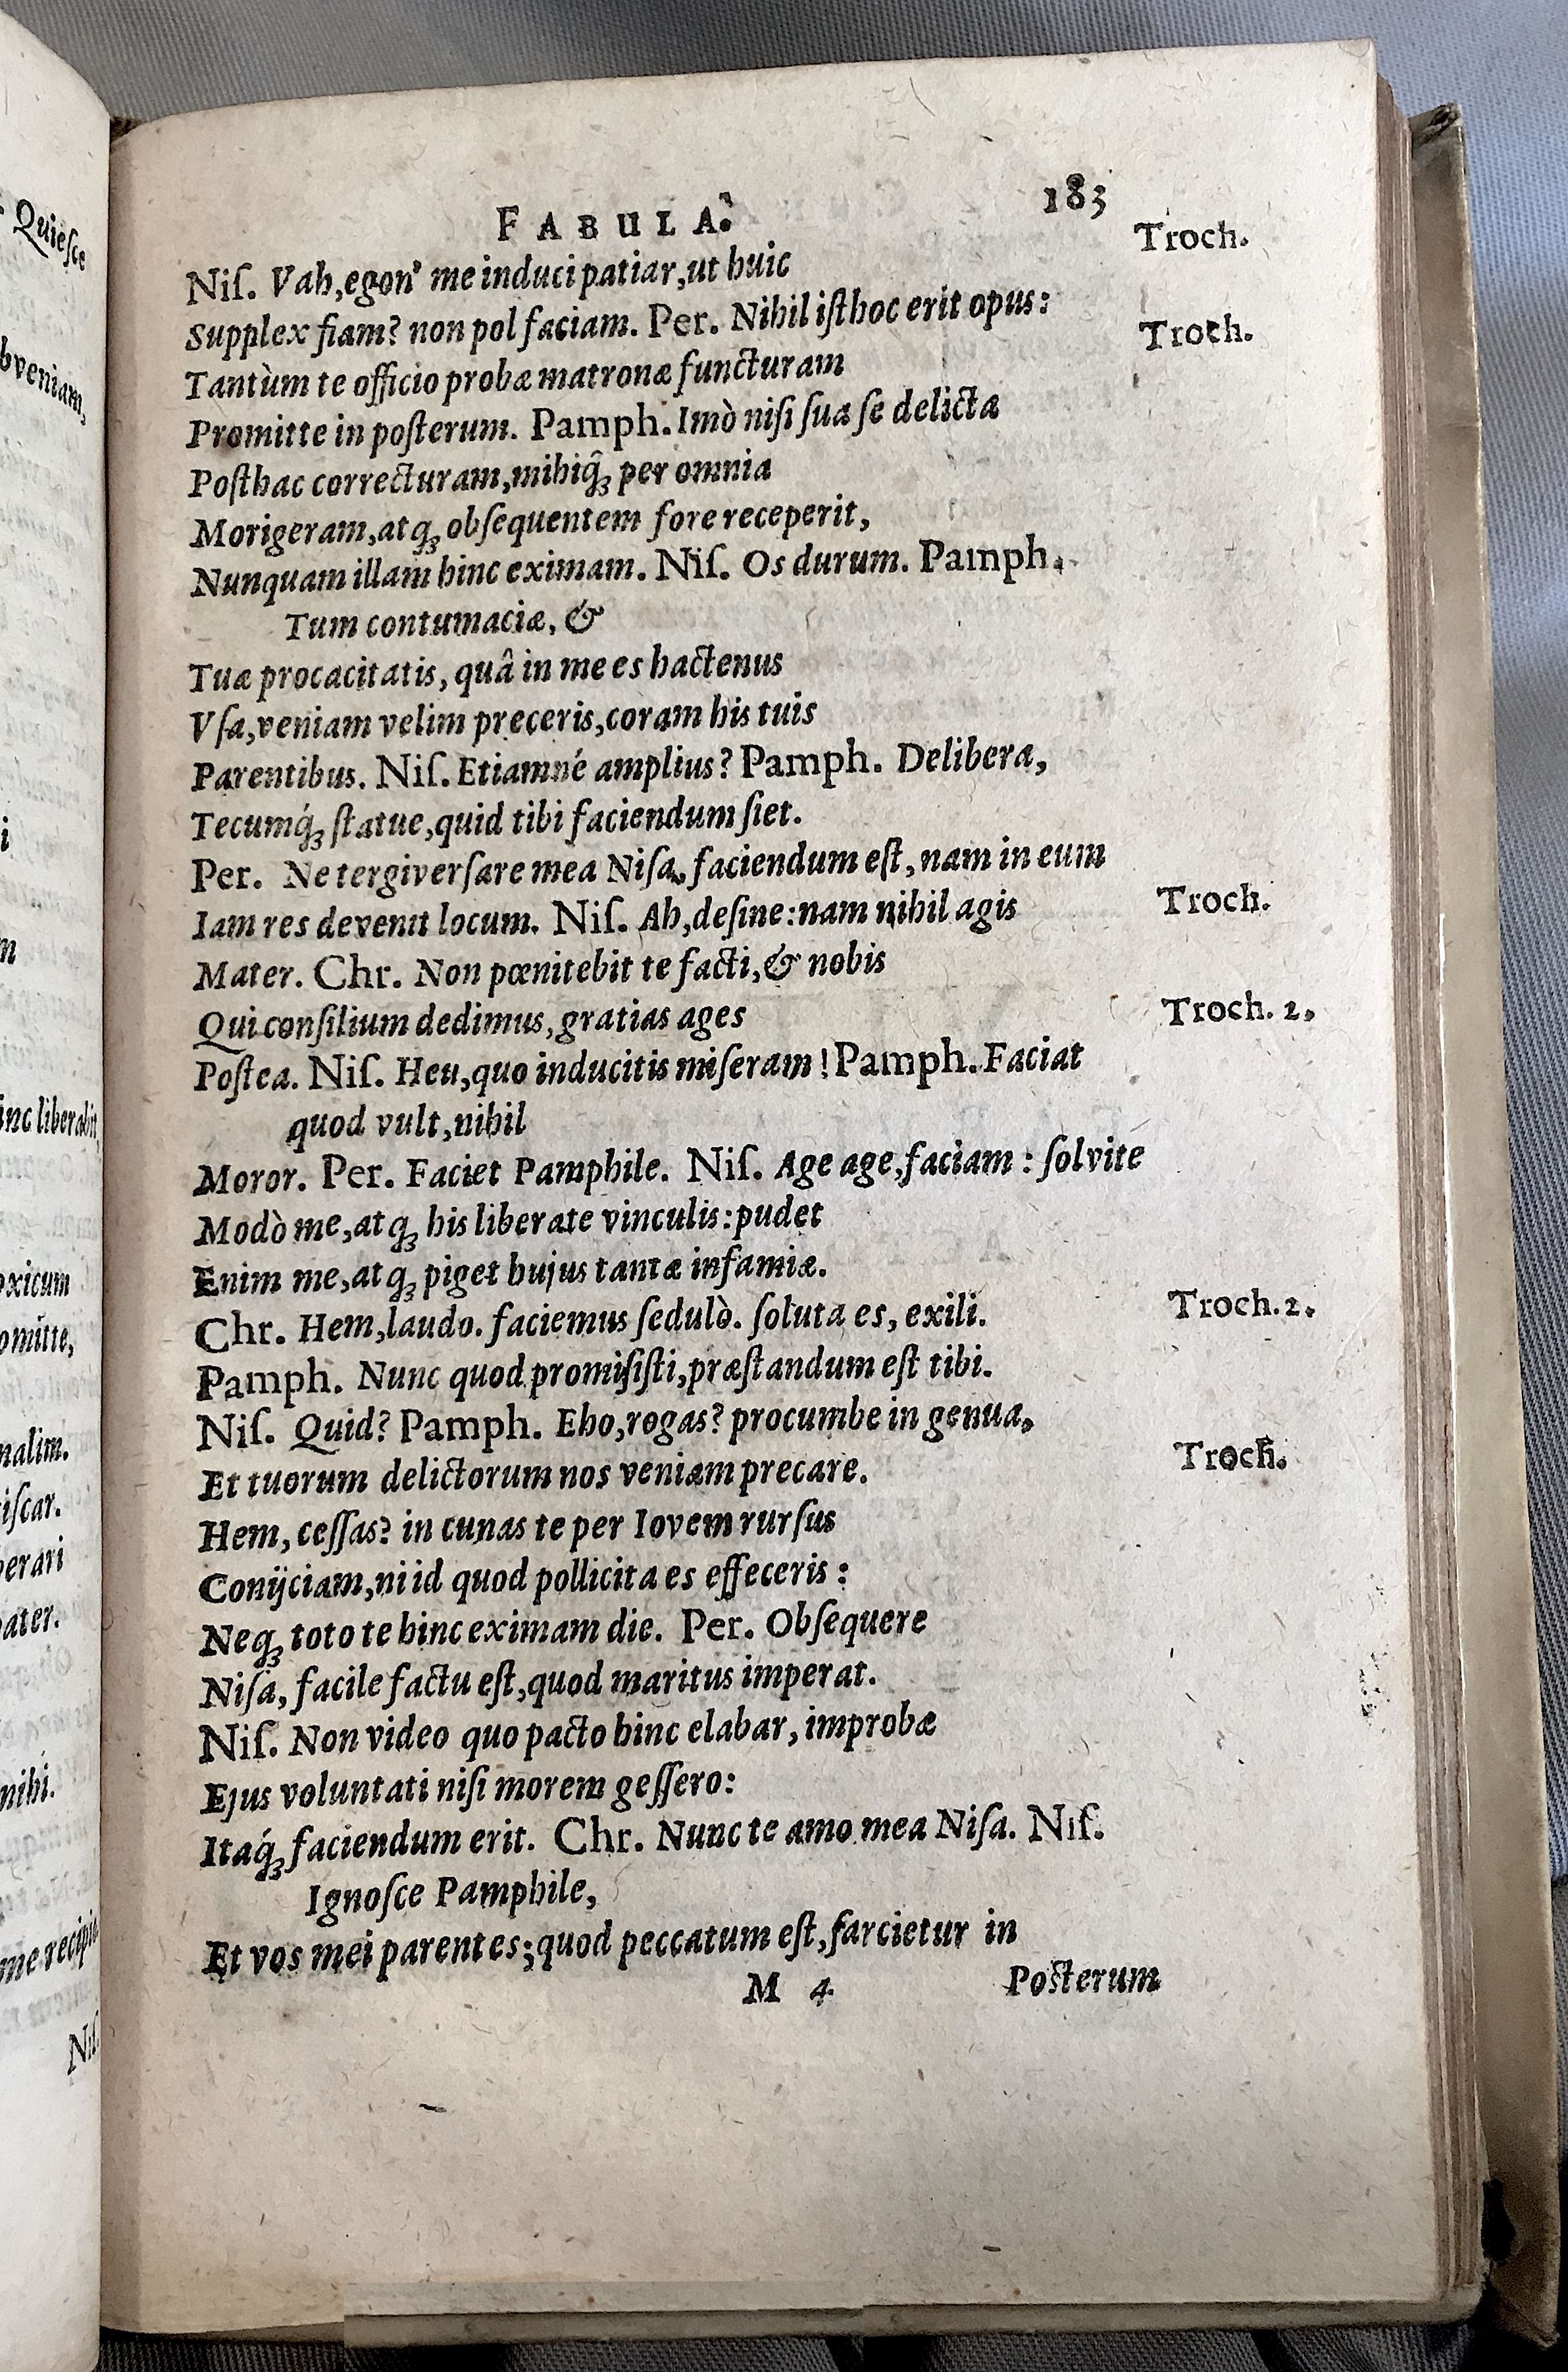 Quiesce
bveniam,
i
inc liberabit,
oxicum
omitte,
malim.
iscar.
berari
pater.
mihi.
me recipia
Niſ.
FABULA.
183
Niſ. Vah,egon' me induci patiar,ut huic
Troch.
Supplex fiam? non pol faciam. Per. Nihil iſthoc erit opus:
Tantùm te officio probæ matronæ functuram
Troch.
Promitte in poſterum. Pamph. Imò niſi ſua ſe delicta
Poſthac correcturam,mihiq́ꝫ per omnia
Morigeram,atqꝫ obſequentem fore receperit,
Nunquam illam hinc eximam. Niſ. Os durum. Pamph.
Tum contumaciæ, &
Tuæ procacitatis, quâ in me es hactenus
Vſa,veniam velim preceris,coram his tuis
Parentibus. Niſ. Etiamné amplius? Pamph. Delibera,
Tecumq́ꝫ ſtatue,quid tibi faciendum ſiet.
Per. Ne tergiverſare mea Niſa, faciendum eſt, nam in eum
Iam res devenit locum. Niſ. Ah,deſine:nam nihil agis
Troch.
Mater. Chr. Non pœnitebit te facti,& nobis
Qui conſilium dedimus,gratias ages
Troch. 2.
Poſtea. Niſ. Heu,quo inducitis miſeram! Pamph. Faciat
quod vult,nihil
Moror. Per. Faciet Pamphile. Niſ. Age age,faciam: ſolvite
Modò me,atqꝫ his liberate vinculis:pudet
Enim me,atqꝫ piget hujus tantæ infamiæ.
Chr. Hem,laudo. faciemus ſedulò. ſoluta es, exili.
Troch. 2.
Pamph. Nunc quod promiſiſti,præſtandum eſt tibi.
Niſ. Quid? Pamph. Eho,rogas? procumbe in genua,
Et tuorum delictorum nos veniam precare.
Troch.
Hem, ceſſas? in cunas te per Iovem rurſus
Conijciam,ni id quod pollicita es effeceris:
Neqꝫ toto te hinc eximam die. Per. Obſequere
Niſa, facile factu eſt,quod maritus imperat.
Niſ. Non video quo pacto hinc elabar, improbæ
Ejus voluntati niſi morem geſſero:
Itaq́ꝫ faciendum erit. Chr. Nunc te amo mea Niſa. Niſ.
Ignoſce Pamphile,
Et vos mei parentes;quod peccatum eſt,ſarcietur in
M 4
Poſterum